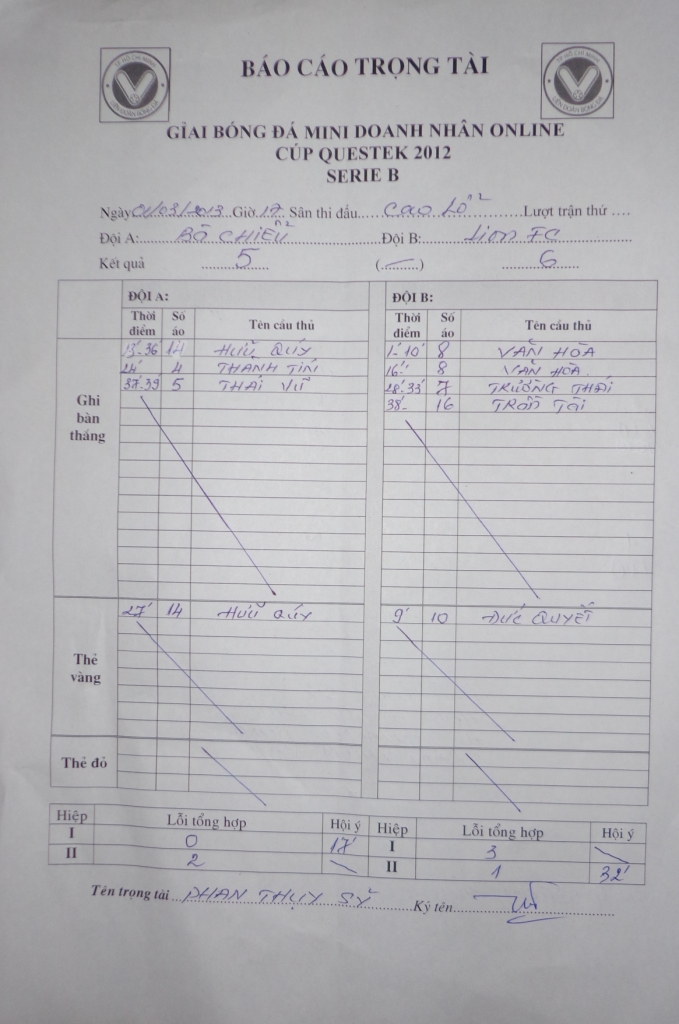 BÁO CÁO TRỌNG TÀI
GIẢI BÓNG ĐÁ MINI DOANH NHÂN ONLINE
CÚP QUESTEK 2012
SERIE B
Ngày 01/03/2013 Giờ 17 Sân thi đấu..... Cao Lỗ ..... Lượt trận thứ ....
Đội A: BÀ CHIỂU Đội B: Lion FC
Kết quả 5 (.....) 6
ĐỘI A: ĐỘI B:
Thời điểm Số áo Tên cầu thủ Thời điểm Số áo Tên cầu thủ
Ghi bàn thắng
13'-36' 14 HỮU QUÝ 1'-10' 8 VĂN HÒA
24' 4 THANH TIN 16' 8 VĂN HÒA
37'-39' 5 THÁI VŨ 28'-33' 7 TRƯỜNG THÁI
38'- 16 TRẦN TÀI
Thẻ vàng
27' 14 HỮU QUÝ 9' 10 ĐỨC QUYẾT
Thẻ đỏ
Hiệp Lỗi tổng hợp Hội ý Hiệp Lỗi tổng hợp Hội ý
I 0 17' I 3
II 2 II 1 32'
Tên trọng tài PHAN THỤY SỸ Ký tên